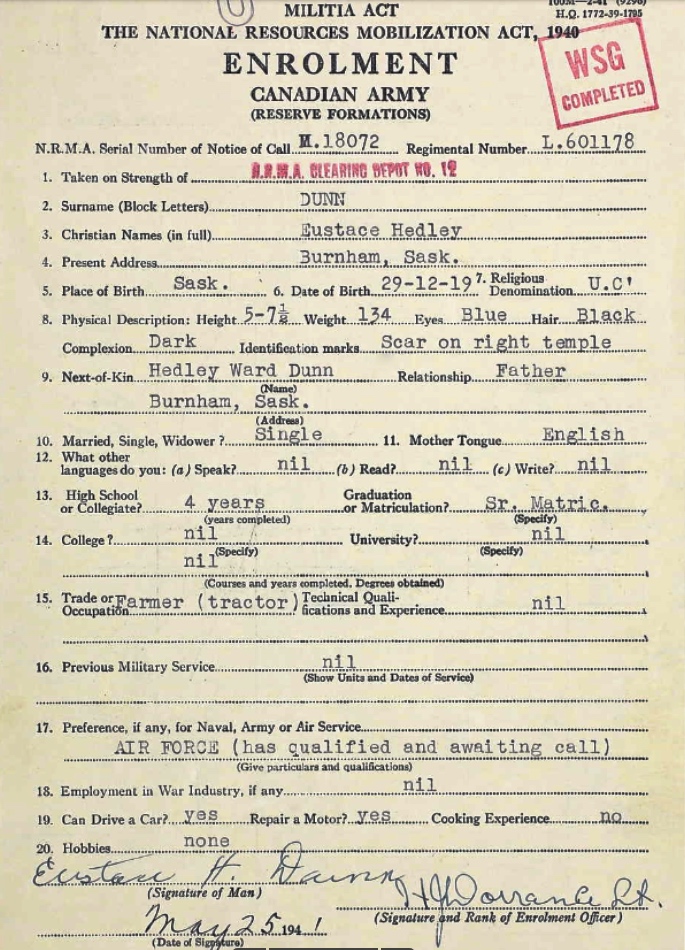 100M—2-41 (9296)
H.Q. 1772-39-1795
MILITIA ACT
THE NATIONAL RESOURCES MOBILIZATION ACT, 1940
WSG
COMPLETED
ENROLMENT
CANADIAN ARMY
(RESERVE FORMATIONS)
N.R.M.A. Serial Number of Notice of Call M.18072 Regimental Number L.601178
1. Taken on Strength of N.R.M.A. CLEARING DEPOT NO. 12
2. Surname (Block Letters) DUNN
3. Christian Names (in full) Eustace Hedley
4. Present Address Burnham, Sask.
5. Place of Birth Sask. 6. Date of Birth 29-12-19 7. Religious Denomination U.C'
8. Physical Description: Height 5-7½ Weight 134 Eyes Blue Hair Black
Complexion Dark Identification marks Scar on right temple
9. Next-of-Kin Hedley Ward Dunn Relationship Father
(Name)
Burnham, Sask.
(Address)
10. Married, Single, Widower? Single 11. Mother Tongue English
12. What other languages do you: (a) Speak? nil (b) Read? nil (c) Write? nil
13. High School or Collegiate? 4 years Graduation or Matriculation? Sr. Matric.
(years completed) (Specify)
14. College? nil University? nil
(Specify) (Specify)
nil
(Courses and years completed. Degrees obtained)
15. Trade or Occupation Farmer (tractor) Technical Qualifications and Experience nil
16. Previous Military Service nil
(Show Units and Dates of Service)
17. Preference, if any, for Naval, Army or Air Service
AIR FORCE (has qualified and awaiting call)
(Give particulars and qualifications)
18. Employment in War Industry, if any nil
19. Can Drive a Car? yes Repair a Motor? yes Cooking Experience no
20. Hobbies none
Eustace H. Dunn
(Signature of Man)
H J Dorrance Lt.
(Signature and Rank of Enrolment Officer)
May 25 1941
(Date of Signature)